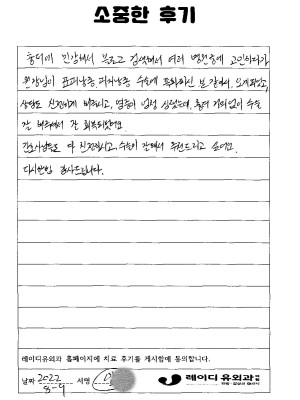 소중한 후기
흉터에 민감해서 블로그 검색해서 여러 병원중에 고민하다가
원장님이 표피낭종, 피지낭종 수술에 특화되신 분 같아서, 오게되었고,
상담도 친절하게 해주시고, 염증이 엄청 심했는데, 흉터 거의없이 수술
잘 해주셔서 잘 회복되었어요.
간호사님들도 다 친절하시고, 수술이 잘돼서 추천드리고 싶어요.
다시한번 감사드립니다.
레이디유외과 홈페이지에 치료 후기를 게시함에 동의합니다.
날짜 2022 8-9 서명
레이디유외과